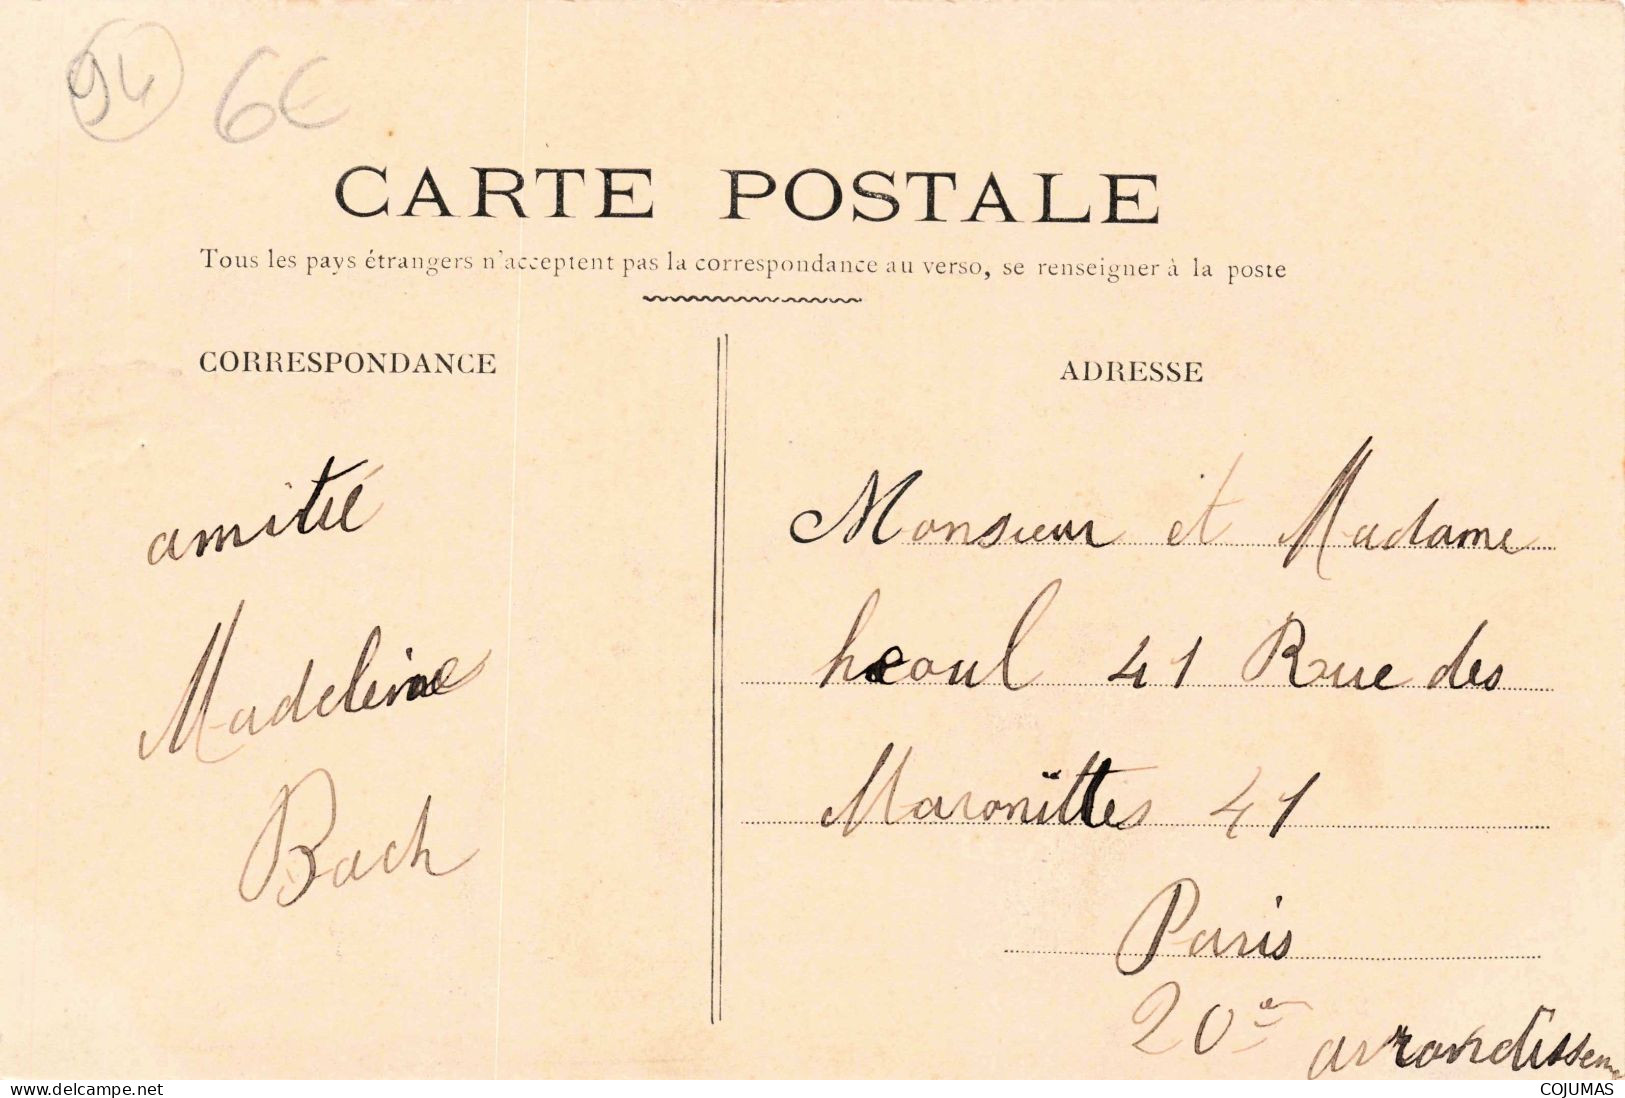 94 6€
CARTE POSTALE
Tous les pays étrangers n'acceptent pas la correspondance au verso, se renseigner à la poste
CORRESPONDANCE
amitié
Madeleine
Bach
ADRESSE
Monsieur et Madame
41 Rue des
Maronittes 41
Paris
20e
arrondisseme
www.delcampe.net
COJUMAS